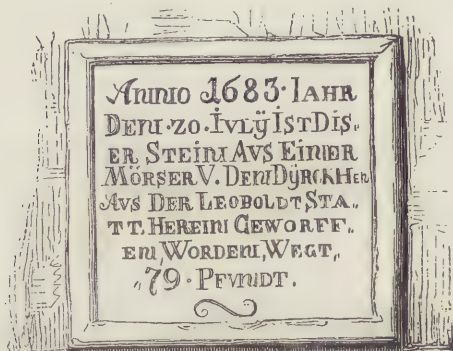 Anno 1683· Jahr
Den·20·Ivlÿ Ist Dis„
er Stein Avs Einer
Mörser V. Den Dÿrckhen
Avs Der Leoboldt Sta„
tt Herein Geworff„
en, Worden, Wegt„
„79·Pfvndt.